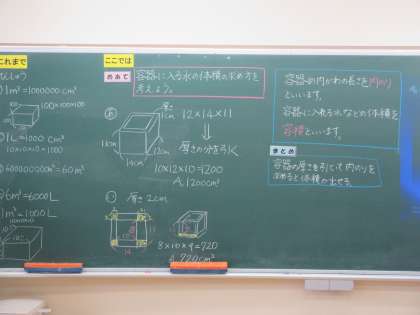 これまで
1m³=1000000cm³
100×100×100
1L=1000cm³
10×10×10=1000
60000000cm³=60m³
6m³=6000L
1m³=1000L
ここでは
めあて
容器に入る水の体積の求め方を
考えよう。
厚さ
1cm
12×14×11
厚さの分を引く
14cm
12cm
10×12×10=1200
A.1200cm³
厚さ2cm
8×10×9=720
A.720cm³
容器の内がわの長さを内のり
といいます。
容器に入れる水などの体積を
容積といいます。
まとめ
容器の厚さを引いて内のりを
求めると体積が出せる。